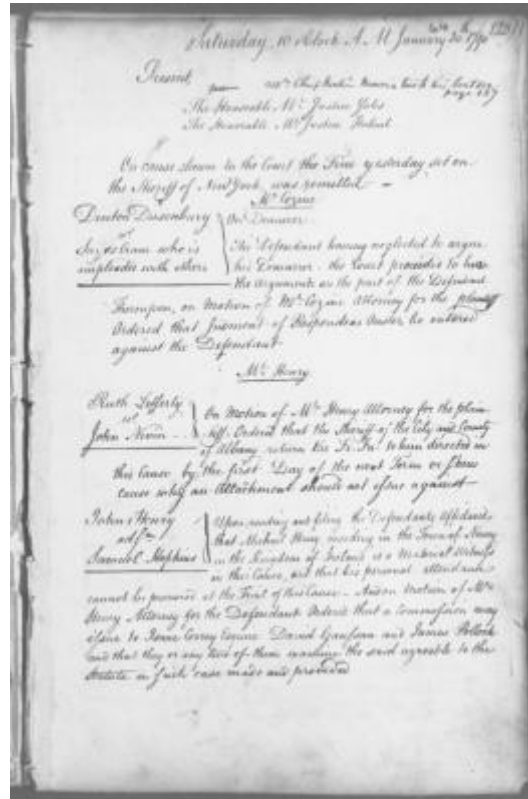 Saturday, 10 oClock A. M January 30th 1790
Present
The Honorable Mr. Justice Yates
The Honorable Mr. Justice Hobart
On cause shewn to the Court the Fine yesterday set on
the Sheriff of New York was remitted —
Mr. Cozine
Denton Dusenbury
On Demurrer
who is
impleaded with others
The Defendant having neglected to argue
his Demurrer the Court proceeded to hear
the Arguments on the part of the Defendant
Thereupon, on Motion of Mr. Cozine Attorney for the plaintiff
Ordered that Judgment of Respondeas Ouster be entered
against the Defendant
Mr. Henry
Ruth Lefferty
vs
John Nivin
On Motion of Mr. Henry Attorney for the plain
tiff. Ordered that the Sheriff of the City and County
of Albany return the Fi. Fa. to him directed in
this Cause by the first Day of the next Term or shew
cause why an Attachment should not issue against
Henry
ads
Samuel Hopkins
Upon reading and filing the Defendants Affidavit
that Michael Henry residing in the Town of Newry
in the Kingdom of Ireland is a Material Witness
in this Cause, and that his personal attendance
cannot be procured at the Trial of this Cause — And on Motion of Mr.
Henry Attorney for the Defendant Ordered that a Commission may
issue to Isaac Corry Esquire David and James Pollock
and that they or any two of them the said agreable to the
Statute in such case made and provided